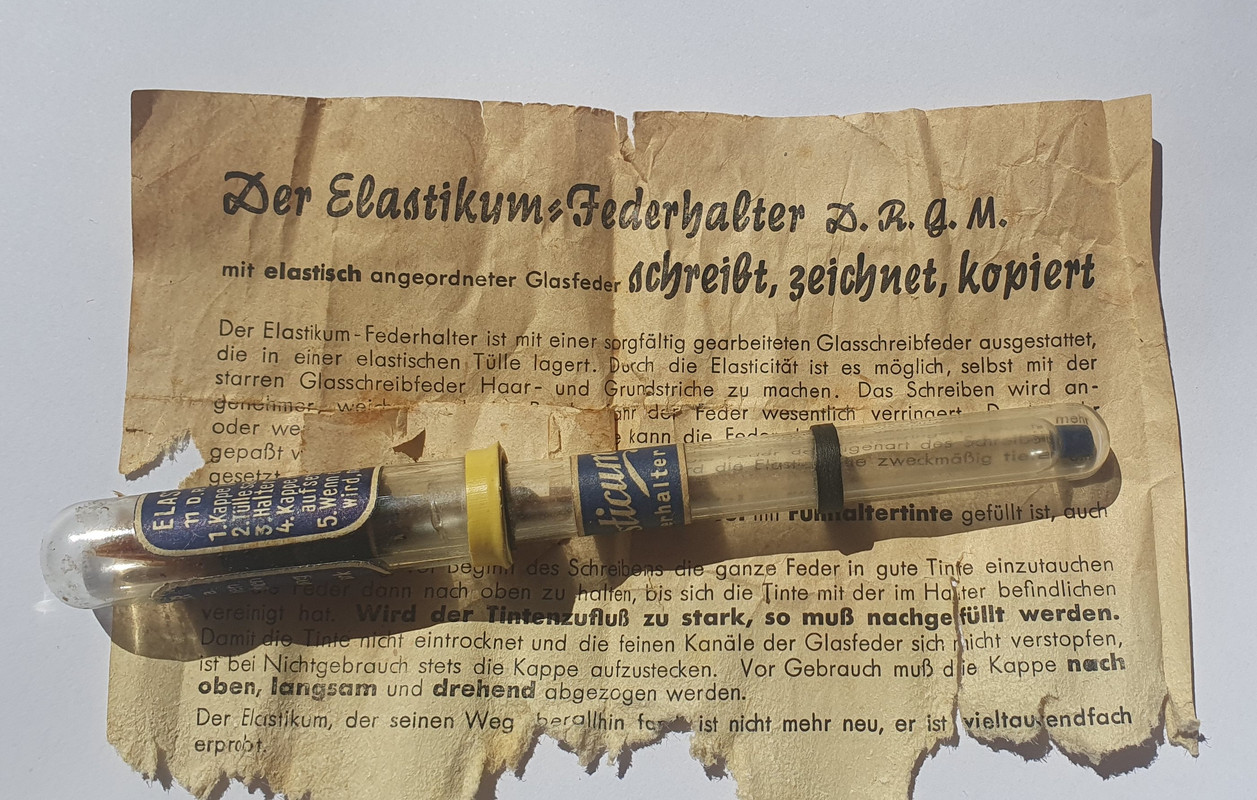 Der Elastikum-Federhalter D. R. G. M.
mit elastisch angeordneter Glasfeder schreibt, zeichnet, kopiert
Der Elastikum-Federhalter ist mit einer sorgfältig gearbeiteten Glasschreibfeder ausgestattet,
die in einer elastischen Tülle lagert. Durch die Elasticität ist es möglich, selbst mit der
starren Glasschreibfeder Haar- und Grundstriche zu machen. Das Schreiben wird an-
genehmer, der Feder wesentlich verringert. mehr
oder kann die
gepaßt des
gesetzt die zweckmäßig
füllhaltertinte gefüllt ist, auch
Beginn des Schreibens die ganze Feder in gute Tinte einzutauchen
Feder dann nach oben zu halten, bis sich die Tinte mit der im Halter befindlichen
vereinigt hat. Wird der Tintenzufluß zu stark, so muß nachgefüllt werden.
Damit die Tinte nicht eintrocknet und die feinen Kanäle der Glasfeder sich nicht verstopfen,
ist bei Nichtgebrauch stets die Kappe aufzustecken. Vor Gebrauch muß die Kappe nach
oben, langsam und drehend abgezogen werden.
Der Elastikum, der seinen Weg berallhin ist nicht mehr neu, er ist vieltausendfach
erprobt.
ELAS
1. Kappe
2. Tülle
3. Halter
4. Kappe
aufs
5. Wenn
wird,
sticum
erhalter